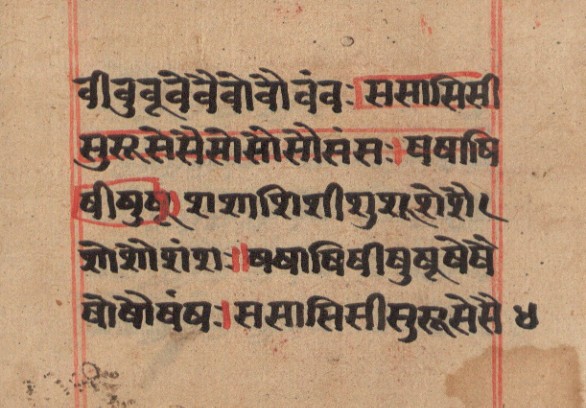 वीवुवूवेवैवोवौवंवः ससासिसी
सुसूसेसैसोसोसौसंसः। षषाषि
षीषुषू शशाशिशीशुशूशेशै।
शोशौशंशः॥ षषाषिषीषुषूषेषै
षोषौषंषः। ससासिसीसुसूसेसै ४